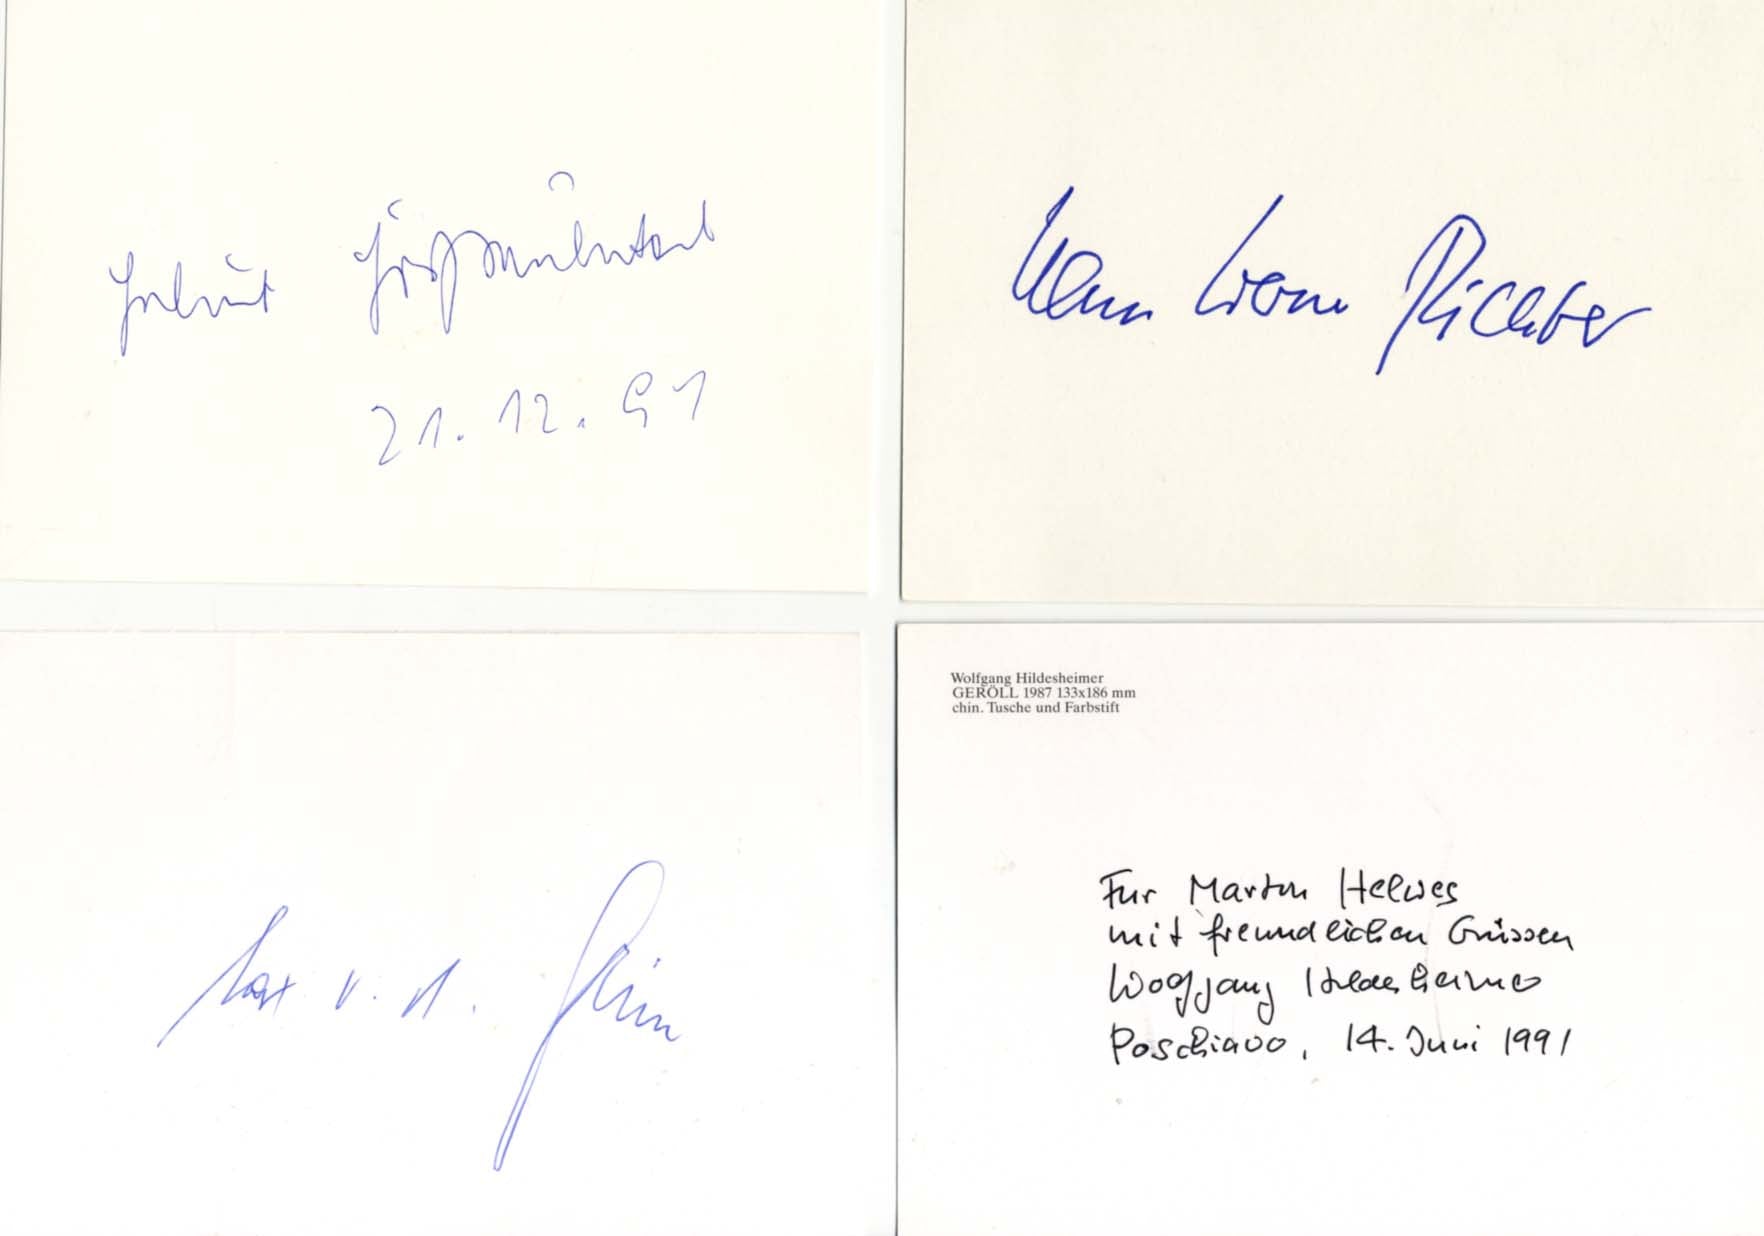 Helmut Heißenbüttel
21.12.91
Hans Werner Richter
Max v. d. Grün
Wolfgang Hildesheimer
GERÖLL 1987 133x186 mm
chin. Tusche und Farbstift
Für Martin Helwes
mit freundlichen Grüssen
Wolfgang Hildesheimer
Poschiavo, 14. Juni 1991